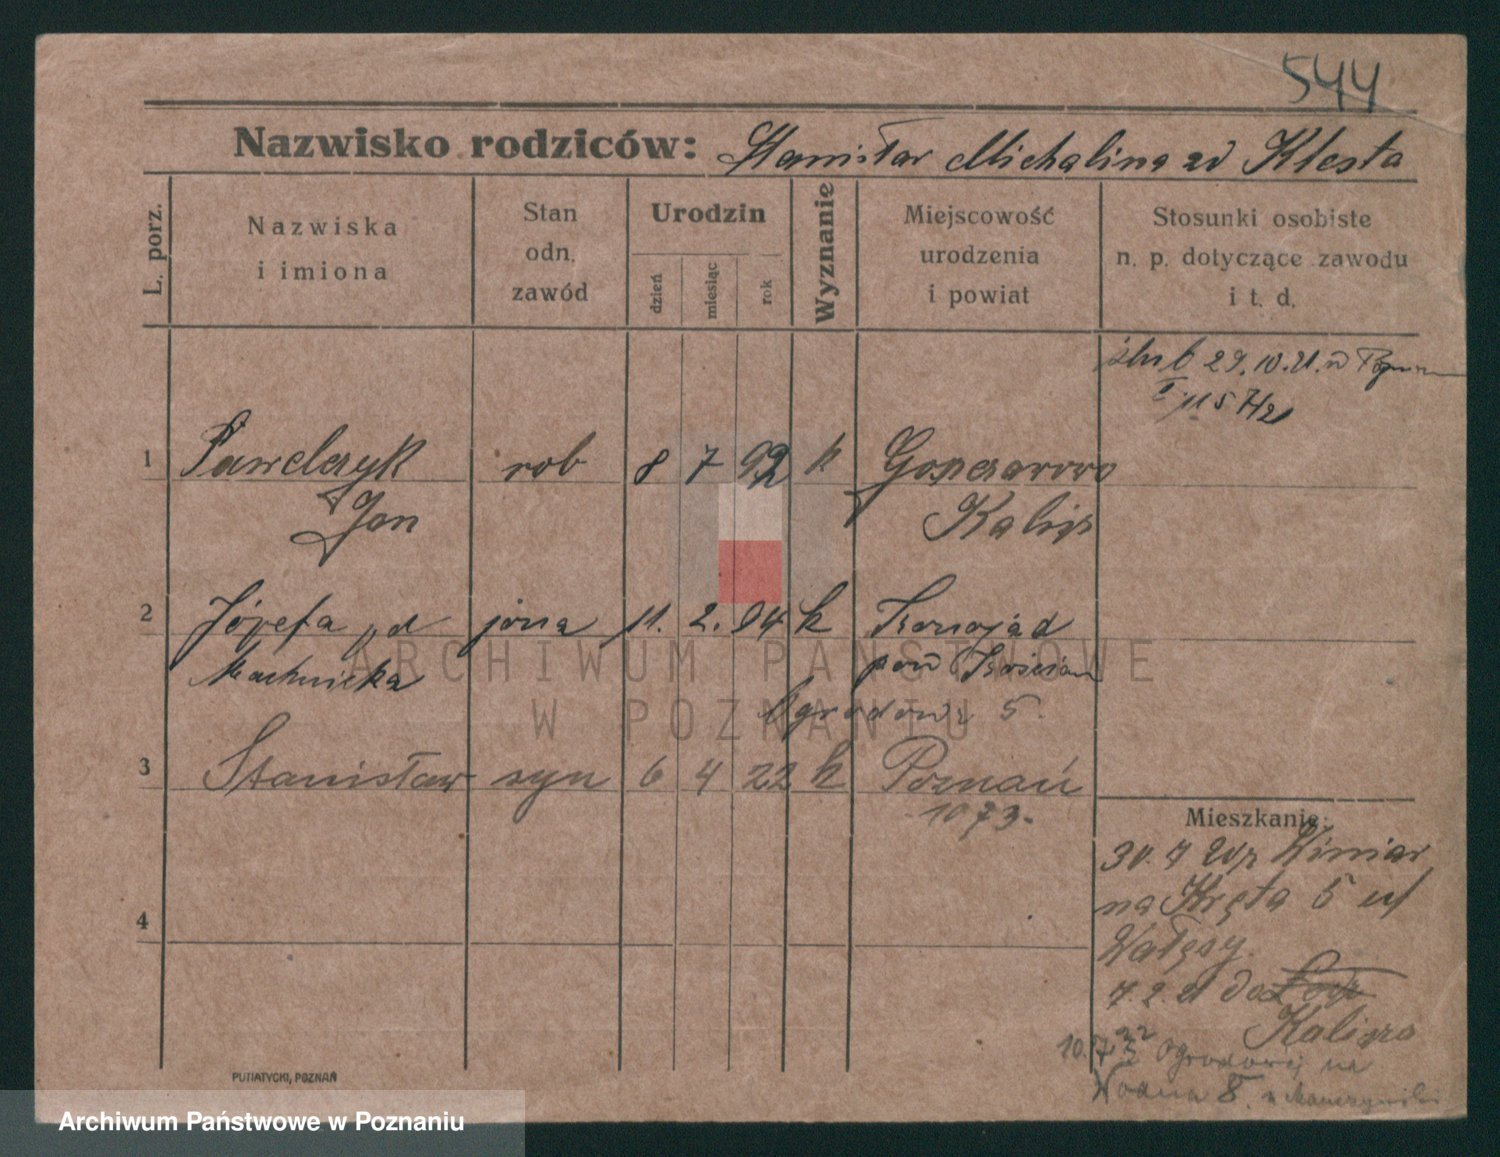 544
Nazwisko rodziców: Stanisław Michalina zd Klesta
L. porz.
Nazwiska
i imiona
Stan
odn.
zawód
Urodzin
dzień
miesiąc
rok
Wyznanie
Miejscowość
urodzenia
i powiat
Stosunki osobiste
n. p. dotyczące zawodu
i t. d.
ślub 29.10.21. w
1 Pawelczyk rob 8 7 92 k
Jan Kalisz
2 Józefa żona 11. 2. 94 k
Machnicka pow
Ogrodowa 5.
3 Stanisław syn 6 4 22 k Poznań
1073.
Mieszkanie:
30.7
na Kręta 5 u
7.2.21 do
Kalisza
Ogrodowej na
Wodna 8.
4
PUTIATYCKI, POZNAŃ
ARCHIWUM PAŃSTWOWE
W POZNANIU
Archiwum Państwowe w Poznaniu